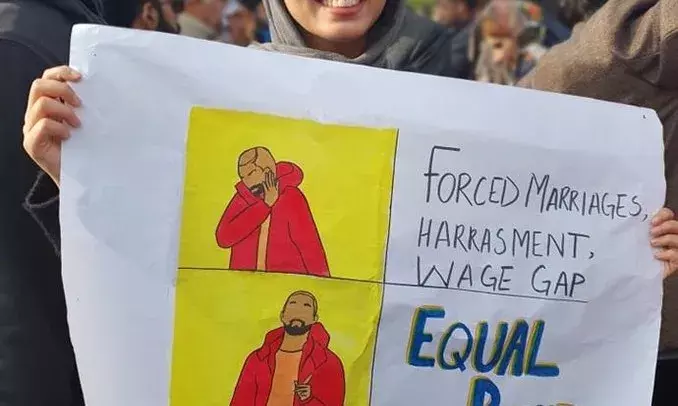 FORCED MARRIAGES,
HARRASMENT,
WAGE GAP
EQUAL